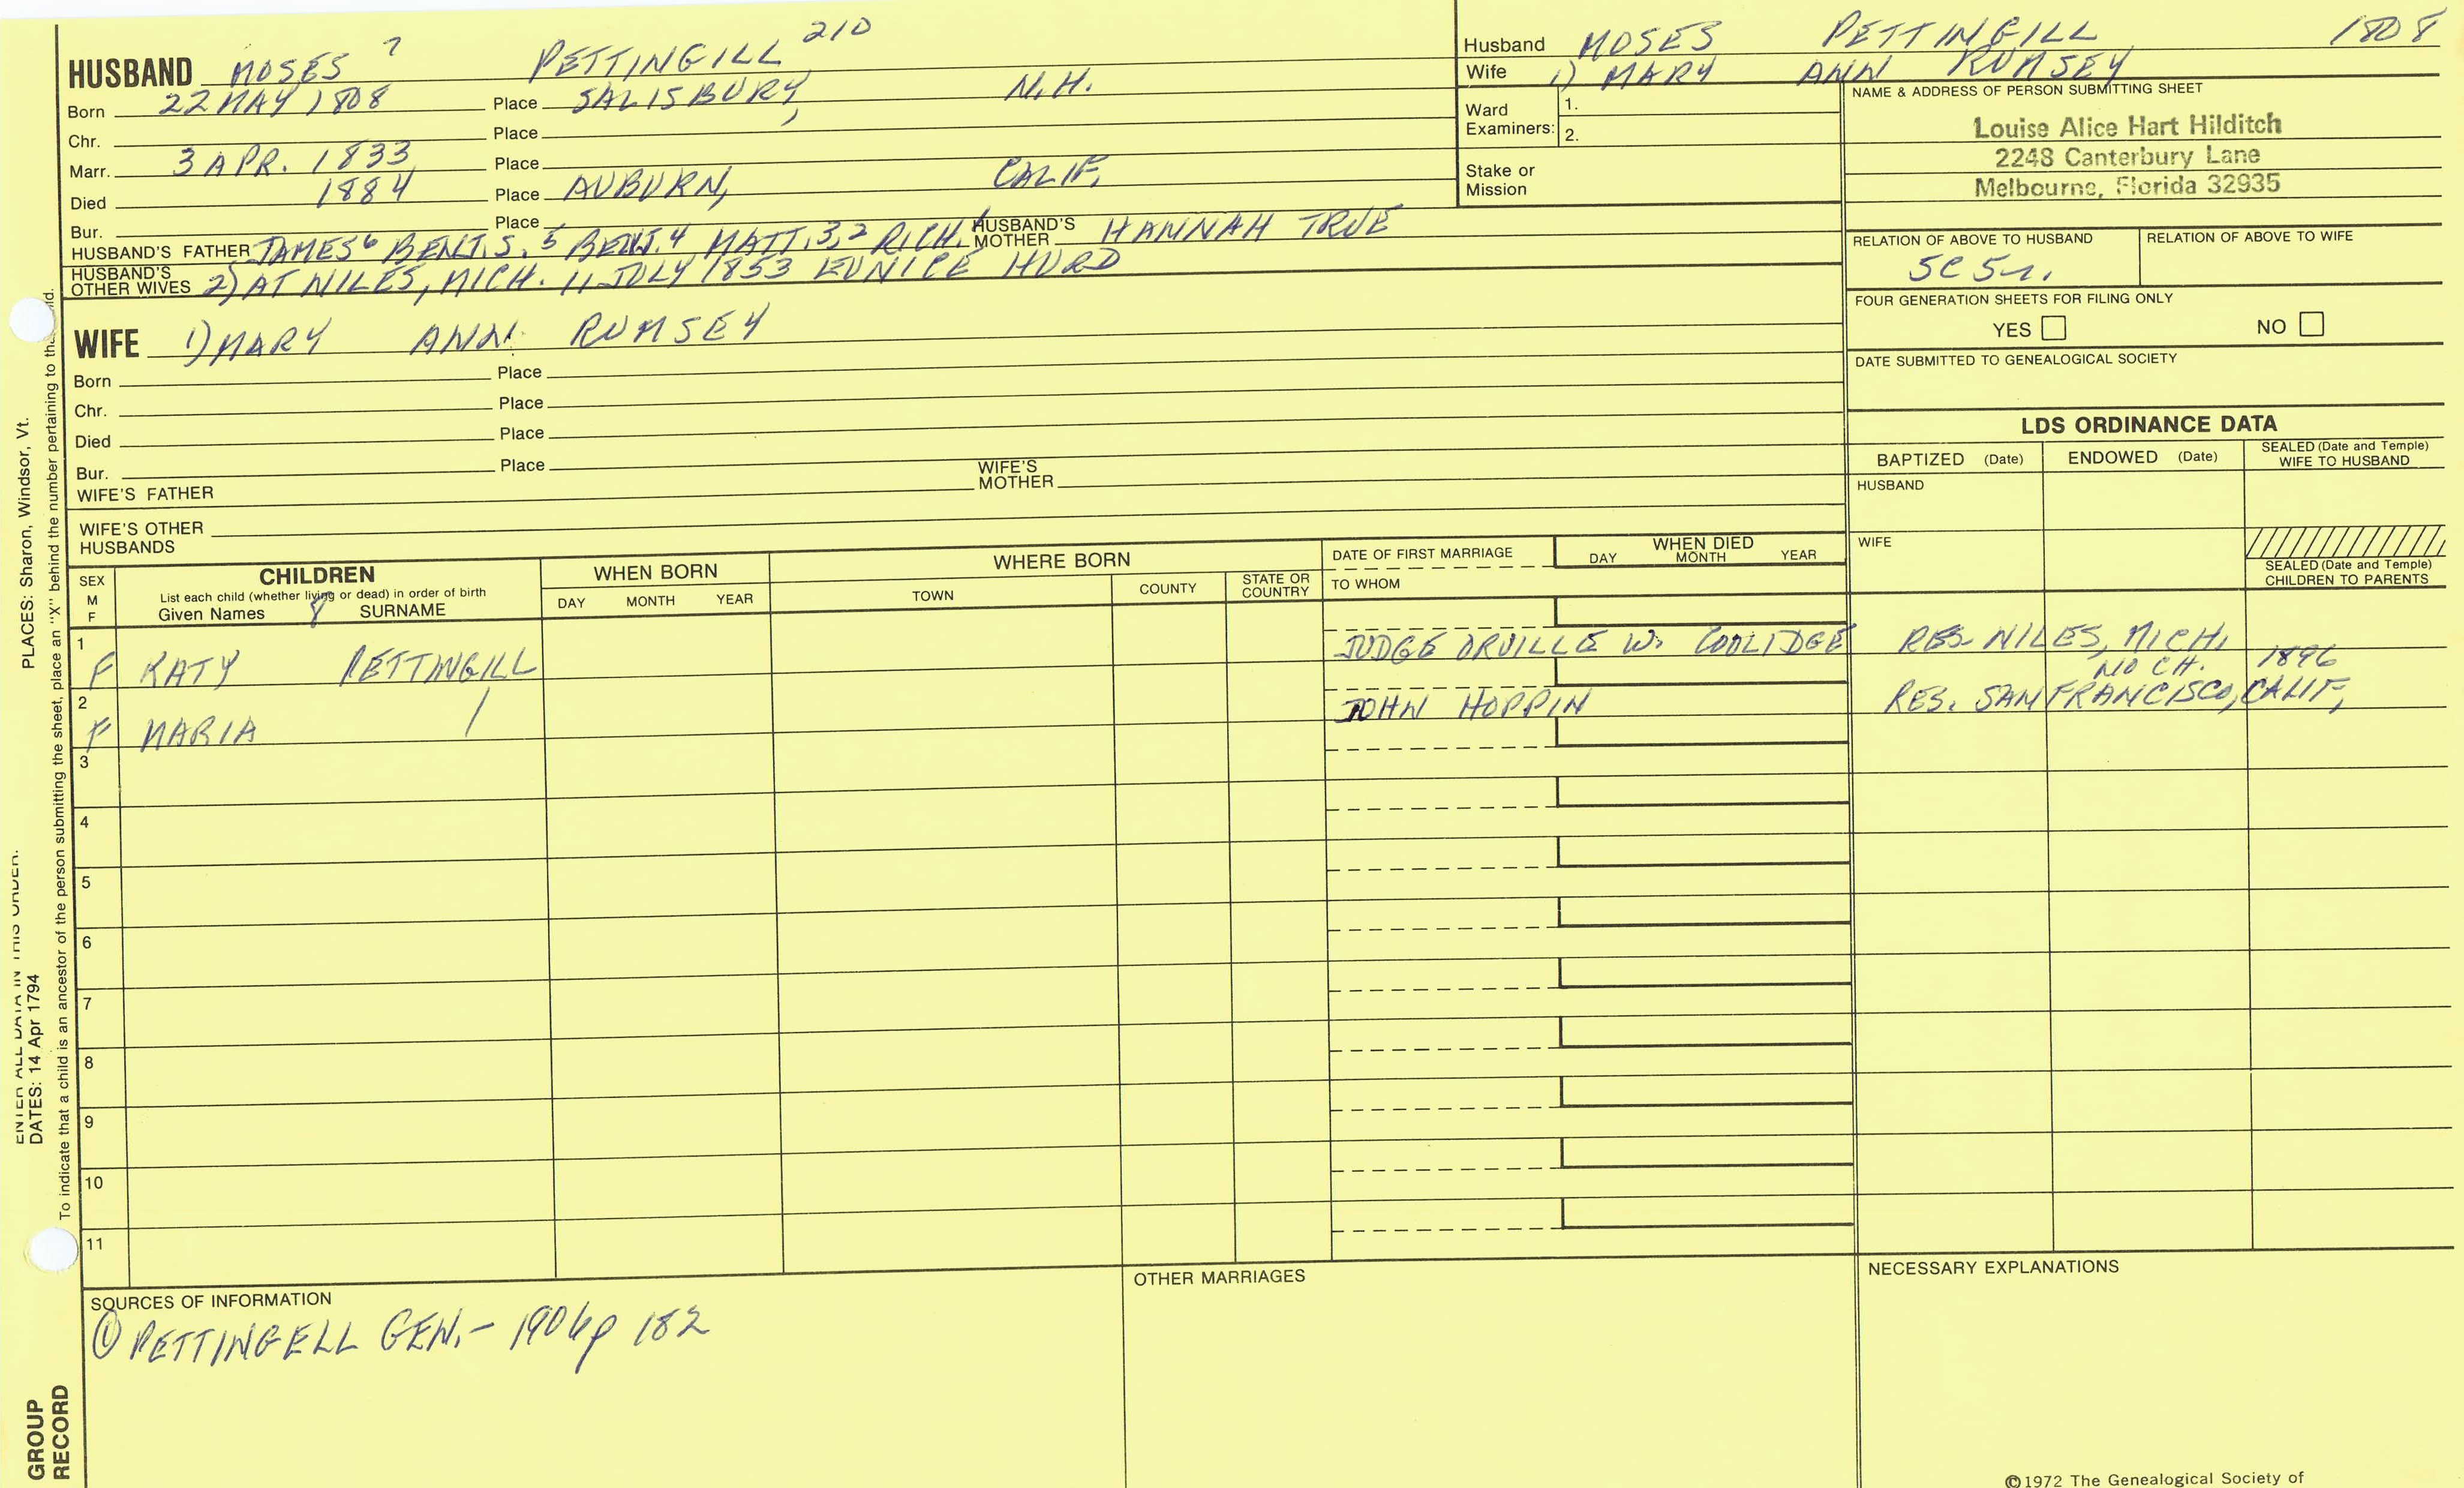 HUSBAND MOSES 7 PETTINGILL 210
Born 22 MAY 1808 Place SALISBURY, N.H.
Chr. Place
Marr. 3 APR. 1833 Place
Died 1884 Place AUBURN, CALIF.
Bur. Place
HUSBAND'S FATHER JAMES 6 BENJ. S. 5 BENJ. 4 MATT. 3, 2 RICH. 1 HUSBAND'S MOTHER HANNAH TRUE
HUSBAND'S OTHER WIVES 2) AT NILES, MICH. 11 JULY 1853 EUNICE HURD
Husband MOSES PETTINGILL 1808
Wife 1) MARY ANN RUMSEY
Ward Examiners: 1.
2.
Stake or Mission
NAME & ADDRESS OF PERSON SUBMITTING SHEET
Louise Alice Hart Hilditch
2248 Canterbury Lane
Melbourne, Florida 32935
RELATION OF ABOVE TO HUSBAND RELATION OF ABOVE TO WIFE
5C 5r.
FOUR GENERATION SHEETS FOR FILING ONLY
YES NO
DATE SUBMITTED TO GENEALOGICAL SOCIETY
WIFE 1) MARY ANN RUMSEY
Born Place
Chr. Place
Died Place
Bur. Place
WIFE'S FATHER WIFE'S MOTHER
WIFE'S OTHER HUSBANDS
LDS ORDINANCE DATA
BAPTIZED (Date) ENDOWED (Date) SEALED (Date and Temple) WIFE TO HUSBAND
HUSBAND
WIFE
SEALED (Date and Temple) CHILDREN TO PARENTS
SEX M F
CHILDREN
List each child (whether living or dead) in order of birth
Given Names 8 SURNAME
WHEN BORN
DAY MONTH YEAR
WHERE BORN
TOWN COUNTY STATE OR COUNTRY
DATE OF FIRST MARRIAGE
TO WHOM
WHEN DIED
DAY MONTH YEAR
1 F KATY PETTINGILL JUDGE ORVILLE W. COOLIDGE RES. NILES, MICH.
NO CH. 1896
2 F MARIA / JOHN HOPPIN RES. SAN FRANCISCO, CALIF,
3
4
5
6
7
8
9
10
11
SOURCES OF INFORMATION
① PETTINGELL GEN. - 1906 p 182
OTHER MARRIAGES
NECESSARY EXPLANATIONS
©1972 The Genealogical Society of
PLACES: Sharon, Windsor, Vt.
ENTER ALL DATA IN THIS ORDER:
DATES: 14 Apr 1794
To indicate that a child is an ancestor of the person submitting the sheet, place an "X" behind the number pertaining to that child.
GROUP
RECORD